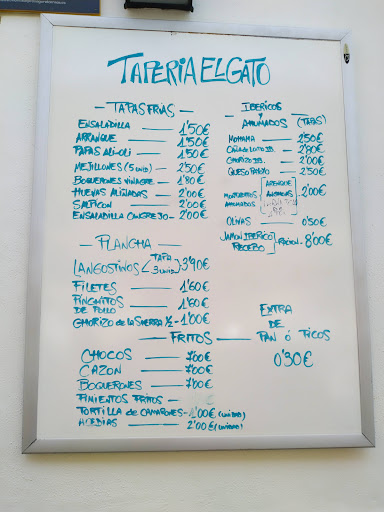 TAPERIA EL GATO
— TAPAS FRÍAS —
ENSALADILLA — 1'50€
ARENQUE — 1'50€
PAPAS ALI-OLI — 1'50€
MEJILLONES (5 UND) — 2'50€
BOQUERONES VINAGRE — 1'80€
HUEVAS ALIÑADAS — 2'00€
SALPICON — 2'00€
ENSALADILLA CANGREJO — 2'00€
— PLANCHA —
LANGOSTINOS < TAPA 3 UNID > 3'90€
FILETES — 1'60€
PINCHITOS
DE POLLO — 1'60€
CHORIZO de la SIERRA 1/2 — 1'00€
— FRITOS —
CHOCOS — 7'00€
CAZON — 7'00€
BOQUERONES — 7'00€
PIMIENTOS FRITOS —
TORTILLA de CAMARONES — 1'00€ (UNIDAD)
ACEDIAS — 2'00€ (UNIDAD)
IBERICOS
Y
AHUMADOS (TAPAS)
MOJAMA — 2'50€
CAÑA de LOMO IB. — 2'80€
CHORIZO IB. — 2'00€
QUESO PAYOYO — 2'50€
MONTADITOS
AHUMADOS
ARENQUE
2'00€
OLIVAS — 0'50€
JAMON IBERICO
RECEBO — RACION — 8'00€
EXTRA
DE
PAN ó PICOS
0'30€